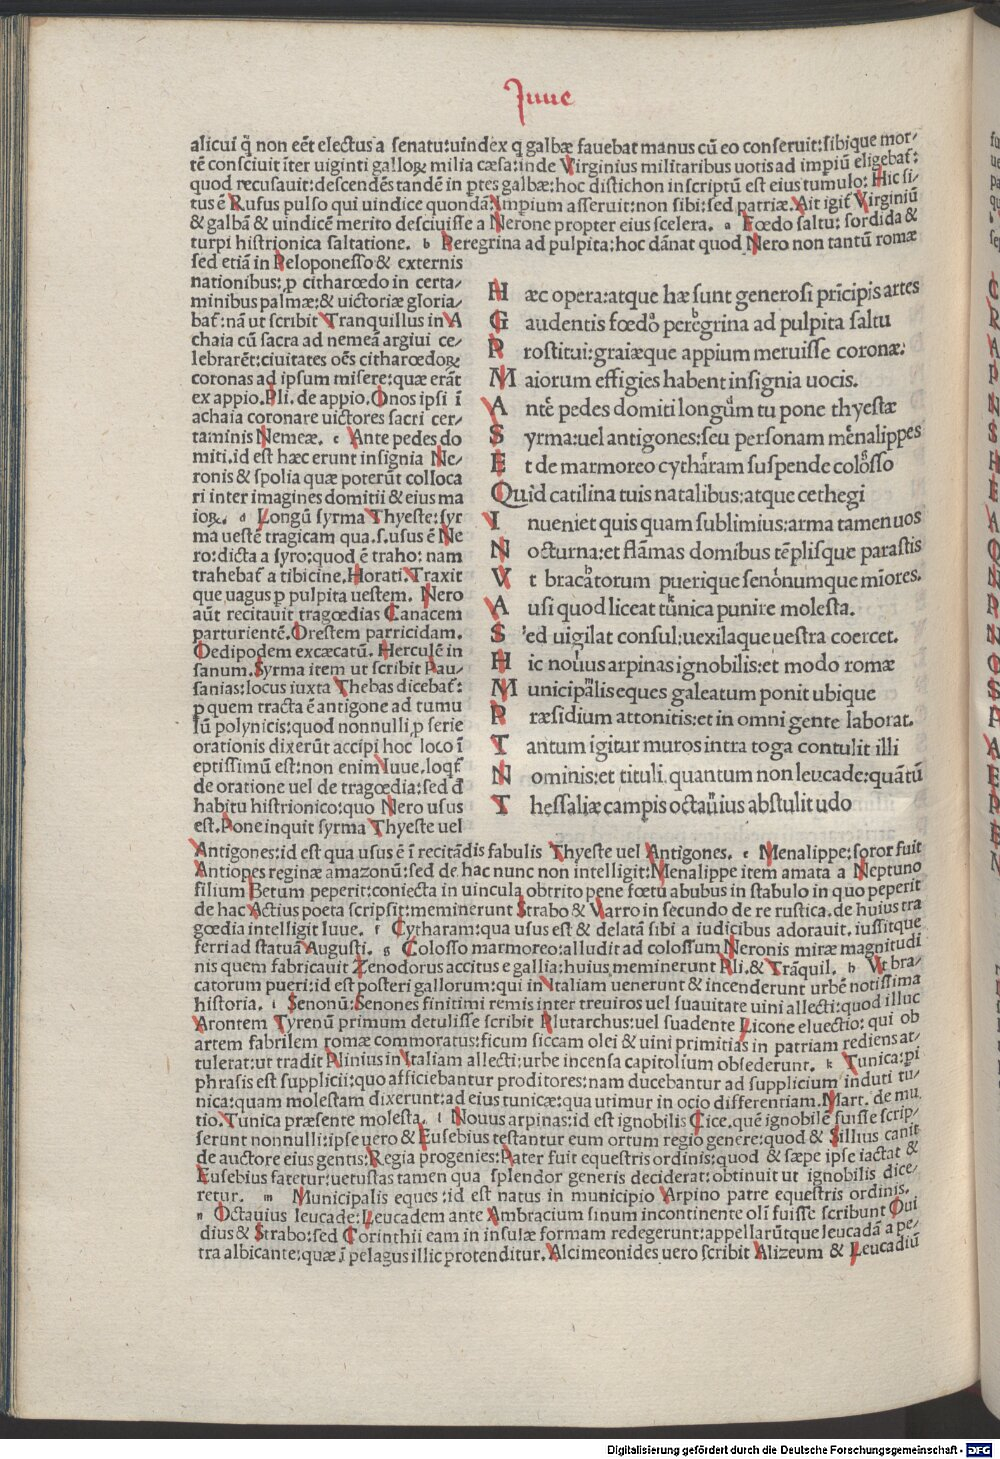 Juue
alicui q̃ non eēt electus a senatu:uindex q galbæ fauebat manus cū eo conseruit:sibique mor/
tē consciuit īter uiginti galloꝝ milia cæsa:inde Virginius militaribus uotis ad impiū eligebat̃:
quod recusauit:descendēs tandē in ptes galbæ:hoc distichon inscriptū est eius tumulo: Hic si/
tus ē Rufus pulso qui uindice quondā:Impium asseruit:non sibi:sed patriæ.Ait igit̃ Virginiū
& galbā & uindicē merito desciuisse a Nerone propter eius scelera. a Fœdo saltu: sordida &
turpi histrionica saltatione. b Peregrina ad pulpita:hoc dānat quod Nero non tantū romæ
sed etiā in Peloponesso & externis
nationibus:ꝓ citharœdo in certa/
minibus palmæ:& uictoriæ gloria/
bat̃:nā ut scribit Tranquillus in A
chaia cū sacra ad nemeā argiui ce/
lebrarēt:ciuitates oēs citharœdoꝝ
coronas ad ipsum misere:quæ erāt
ex appio.Pli.de appio.Onos ipsi ī
achaia coronare uictores sacri cer/
taminis Nemeæ. c Ante pedes do
miti.id est hæc erunt insignia Ne/
ronis & spolia quæ poterūt colloca
ri inter imagines domitii & eius ma
ioꝝ. d Longū syrma Thyeste:syr
ma uestē tragicam qua.s.usus ē Ne
ro:dicta a syro:quod ē traho: nam
trahebat̃ a tibicine.Horati.Traxit
que uagus ꝑ pulpita uestem. Nero
aūt recitauit tragœdias Canacem
parturientē.Orestem parricidam.
Oedipodem excæcatū. Herculē in
sanum.Syrma item ut scribit Pau/
sanias:locus iuxta Thebas dicebat̃:
ꝑ quem tracta ē antigone ad tumu
lū polynicis:quod nonnulli ꝓ serie
orationis dixerūt accipi hoc loco ī
eptissimū est:non enim Iuue.loqt̃
de oratione uel de tragœdia:sed d̄
habitu histrionico:quo Nero usus
est.Pone inquit syrma Thyeste uel
H æc opera:atque hæ sunt generosi prīcipis artes
G audentis fœdo peregrina ad pulpita saltu
P rostitui:graiæque appium meruisse coronæ:
M aiorum effigies habent insignia uocis.
A nte pedes domiti longum tu pone thyestæ
S yrma:uel antigones:seu personam menalippes
E t de marmoreo cytharam suspende colosso
Quid catilina tuis natalibus:atque cethegi
I nueniet quis quam sublimius:arma tamen uos
N octurna:et flāmas domibus tēplisque parastis
V t bracatorum puerique senonumque mīores.
A usi quod liceat tunica punire molesta.
S ed uigilat consul:uexilaque uestra coercet.
H ic nouus arpinas ignobilis:et modo romæ
M unicipalis eques galeatum ponit ubique
P ræsidium attonitis:et in omni gente laborat.
T antum igitur muros intra toga contulit illi
N ominis:et tituli.quantum non leucade:quātū
T hessaliæ campis octauius abstulit udo
Antigones:id est qua usus ē ī recitādis fabulis Thyeste uel Antigones. e Menalippe:soror fuit
Antiopes reginæ amazonū:sed de hac nunc non intelligit:Menalippe item amata a Neptuno
filium Betum peperit:coniecta in uincula obtrito pene fœtu abubus in stabulo in quo peperit
de hac Actius poeta scripsit:meminerunt Strabo & Varro in secundo de re rustica.de huius tra
gœdia intelligit Iuue. f Cytharam:qua usus est & delatā sibi a iudicibus adorauit.iussitque
ferri ad statuā Augusti. g Colosso marmoreo:alludit ad colossum Neronis miræ magnitudi
nis quem fabricauit Zenodorus accitus e gallia:huius meminerunt Pli.& Trāquil. h Vt bra/
catorum pueri:id est posteri gallorum:qui in Italiam uenerunt & incenderunt urbē notissima
historia. i Senonū:Senones finitimi remis inter treuiros uel suauitate uini allecti:quod illuc
Arontem Tyrenū primum detulisse scribit Plutarchus:uel suadente Licone eluectio: qui ob
artem fabrilem romæ commoratus:ficum siccam olei & uini primitias in patriam rediens at/
tulerat:ut tradit Plinius in Italiam allecti:urbe incensa capitolium obsederunt. k Tunica:pi
phrasis est supplicii:quo afficiebantur proditores:nam ducebantur ad supplicium induti tu/
nica:quam molestam dixerunt:ad eius tunicæ:qua utimur in ocio differentiam.Mart. de mu.
tio.Tunica præsente molesta. l Nouus arpinas:id est ignobilis Cice.quē ignobilē fuisse scrip/
serunt nonnulli:ipse uero & Eusebius testantur eum ortum regio genere:quod & Sillius canit
de auctore eius gentis:Regia progenies:Pater fuit equestris ordinis:quod & sæpe ipse iactat &
Eusebius fatetur:uetustas tamen qua splendor generis deciderat:obtinuit ut ignobilis dice/
retur. m Municipalis eques:id est natus in municipio Arpino patre equestris ordinis.
n Octauius leucade:Leucadem ante Ambracium sinum incontinente olī fuisse scribunt Oui
dius & Strabo:sed Corinthii eam in insulæ formam redegerunt:appellarūtque leucadā a pe/
tra albicante:quæ ī pelagus illic protenditur.Alcimeonides uero scribit Alizeum & Leucadiū
Digitalisierung gefördert durch die Deutsche Forschungsgemeinschaft - DFG